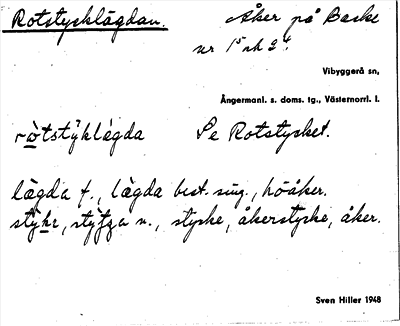 Rotstycklägdan.
Åker på Backe
nr 1⁵ och 2⁴.
Vibyggerå sn,
Ångermanl. s. doms. tg., Västernorrl. l.
ròtstýklàgda Se Rotstycket.
lägda f., lägda best. sing., höåker.
n., stycke, åkerstycke, åker.
Sven Hiller 1948